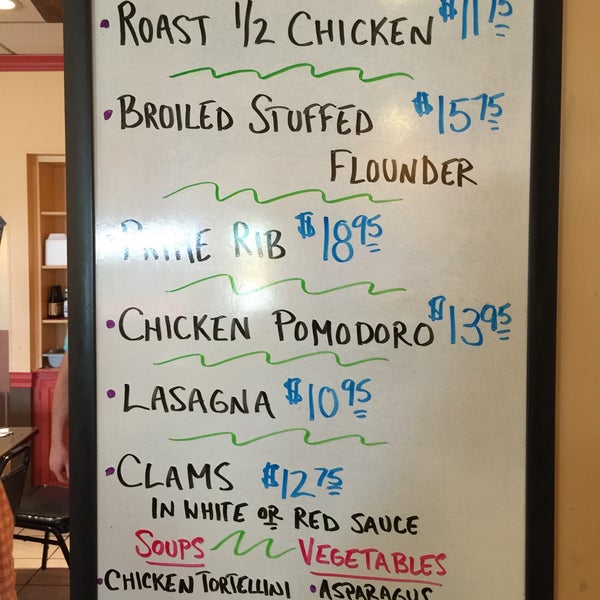 • ROAST 1/2 CHICKEN $11.75
• BROILED STUFFED $15.75
FLOUNDER
• PRIME RIB $18.95
• CHICKEN POMODORO $13.95
• LASAGNA $10.95
• CLAMS $12.75
IN WHITE OR RED SAUCE
SOUPS VEGETABLES
• CHICKEN TORTELLINI • ASPARAGUS